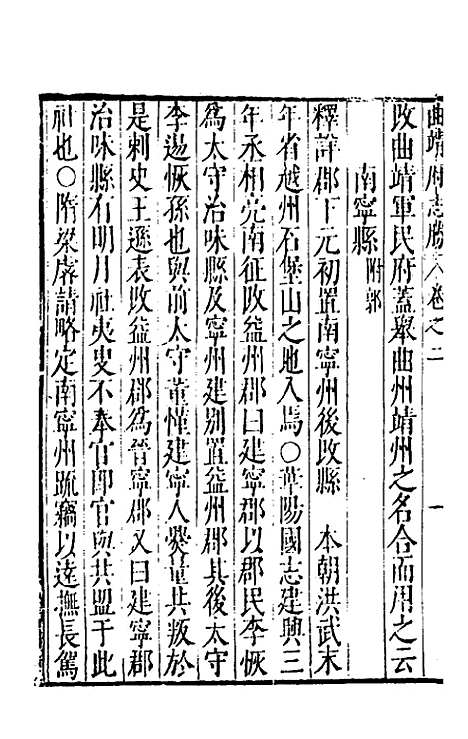 曲靖府志勝卷之二　一
改曲靖軍民府蓋舉曲州靖州之名合而用之云
南寧縣附郭
釋詳郡下元初置南寧州後改縣　本朝洪武末
年省越州石堡山之地入焉○華陽國志建興三
年丞相亮南征改益州郡曰建寧郡以郡民李恢
爲太守治味縣及寧州建别置益州郡其後太守
李逷恢孫也與前太守董慬建寧人爨量共叛於
是刺史王遜表改益州郡爲晉寧郡又曰建寧郡
治味縣有明月社夷叟不奉官卽官與共盟于此
社也○隋梁睿請略定南寧州䟽竊以遠撫長駕